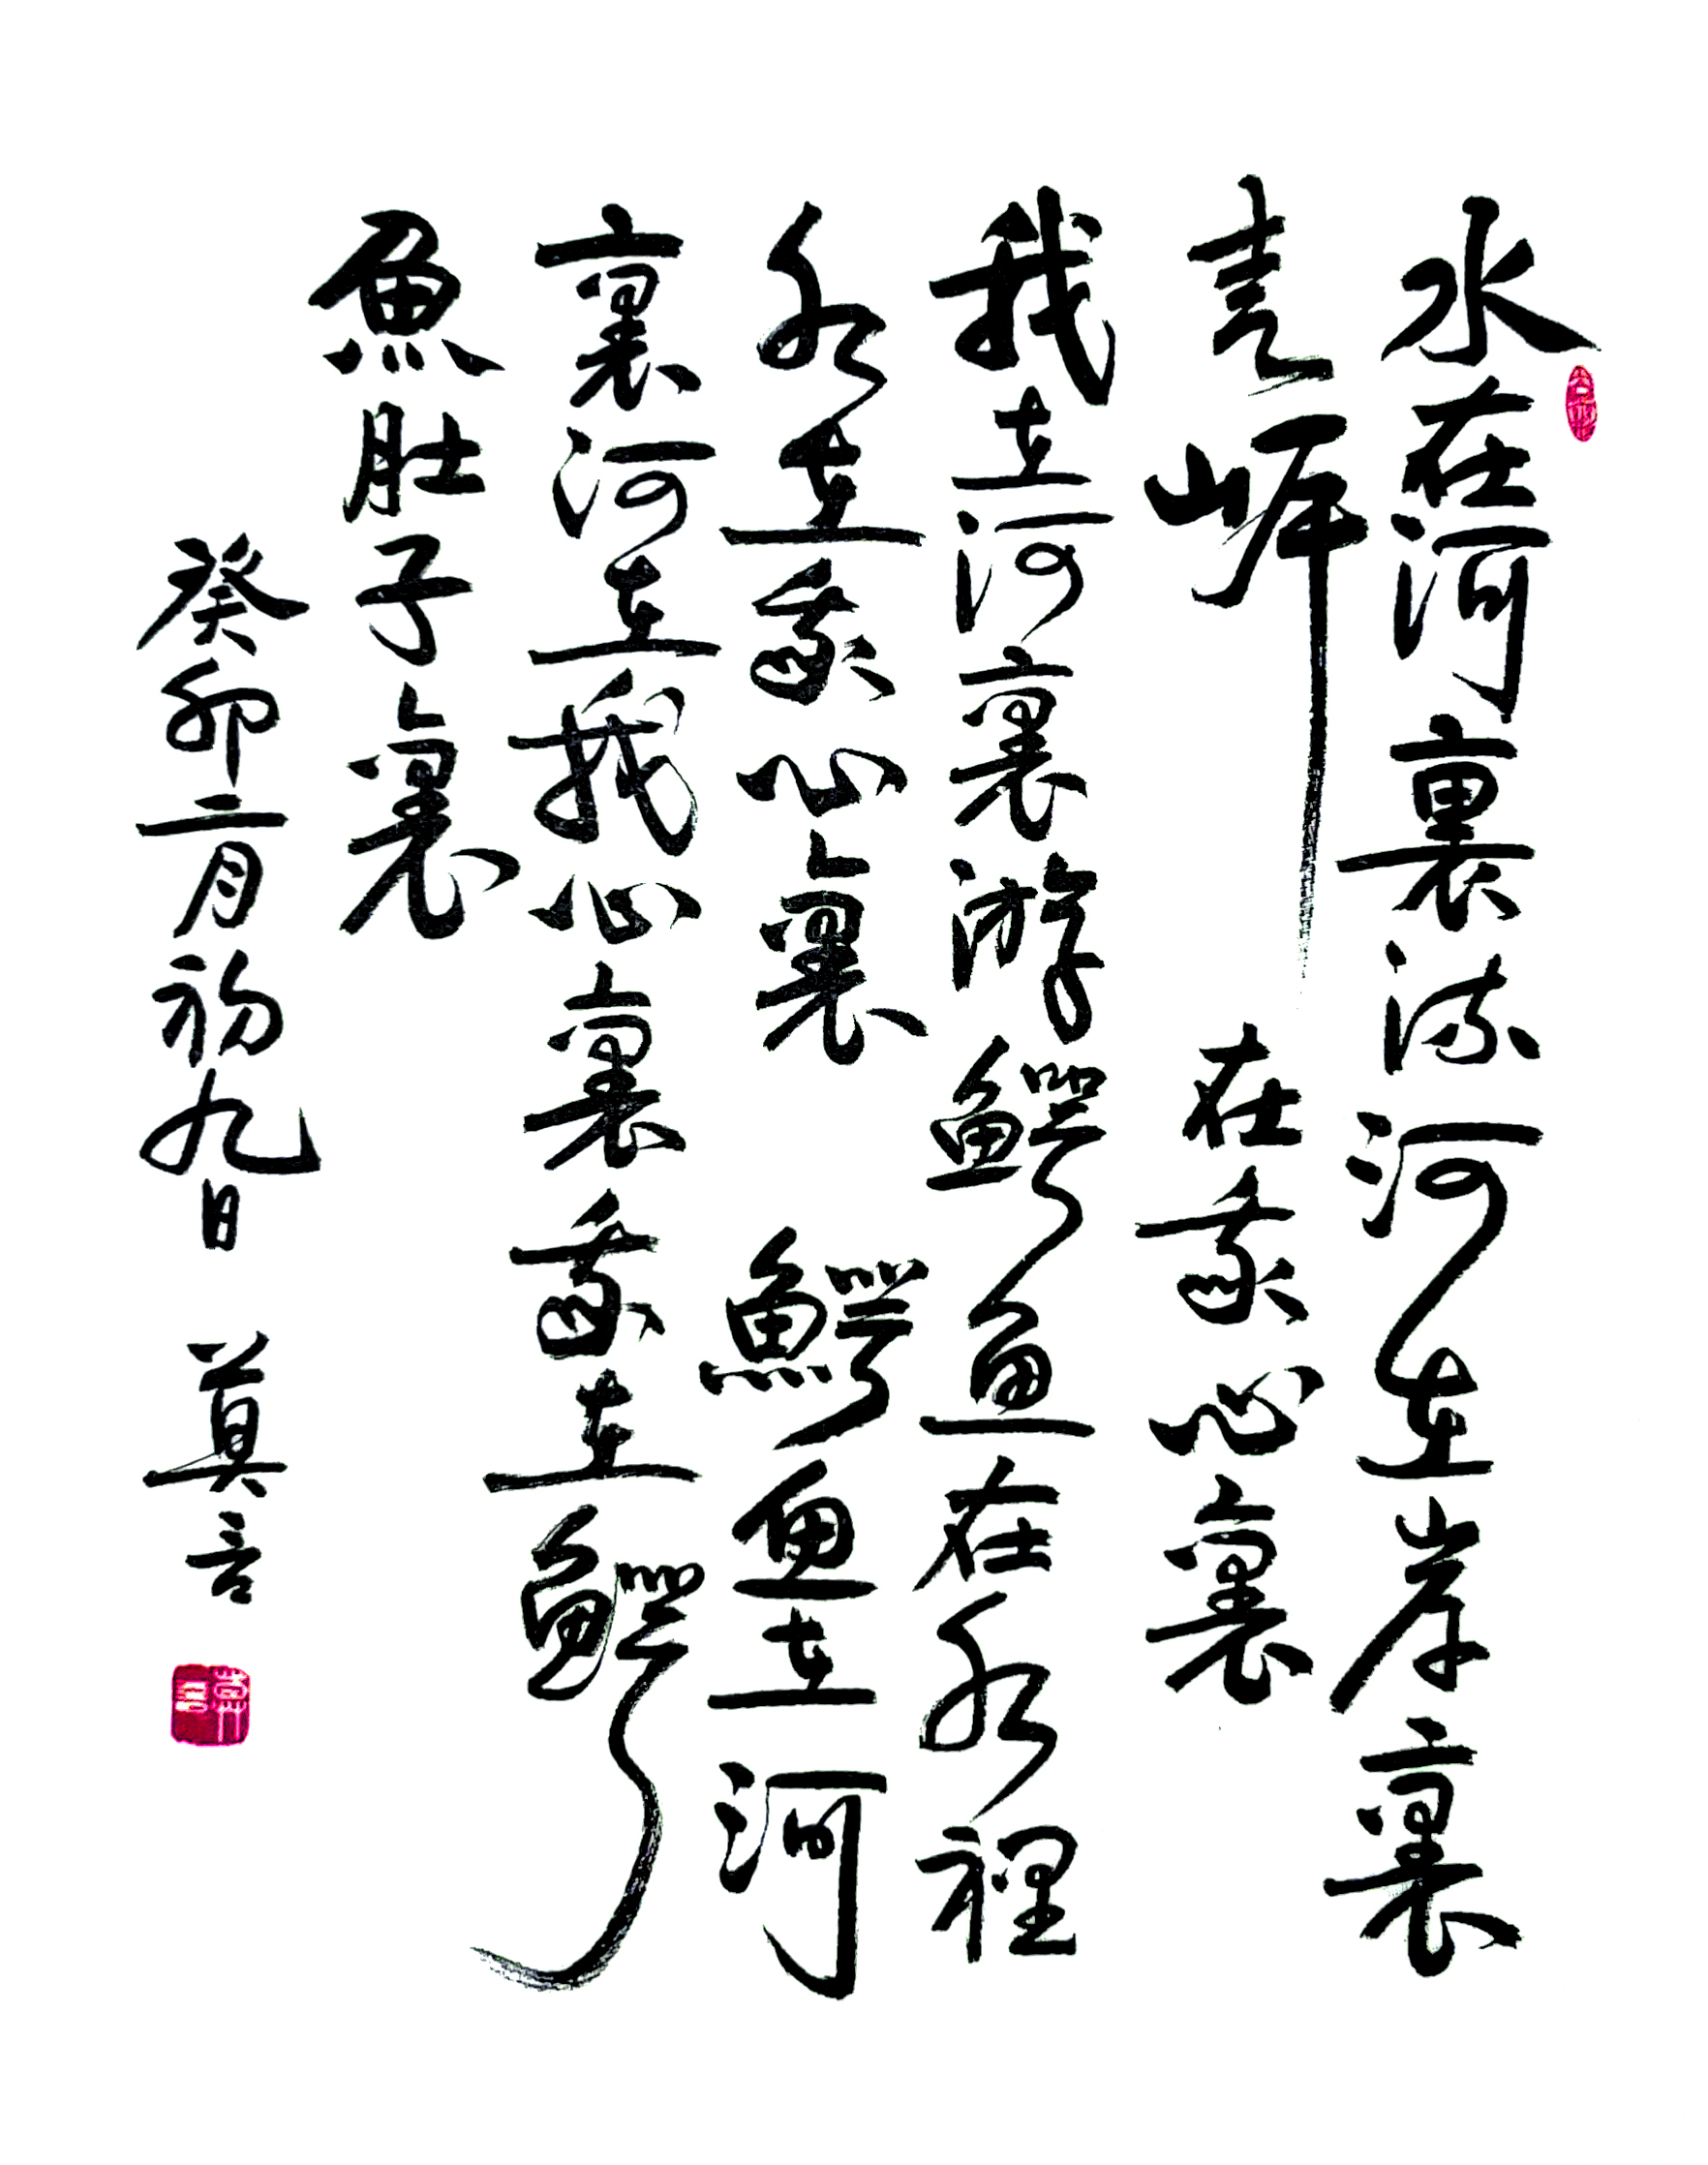 水在河裏流河在岸裏
走岸 在我心裏
我在河裏游鰐魚在水裡
水在我心裏 鰐魚在河
裏河在我心裏我在鰐
魚肚子裏
癸卯二月初九日 莫言